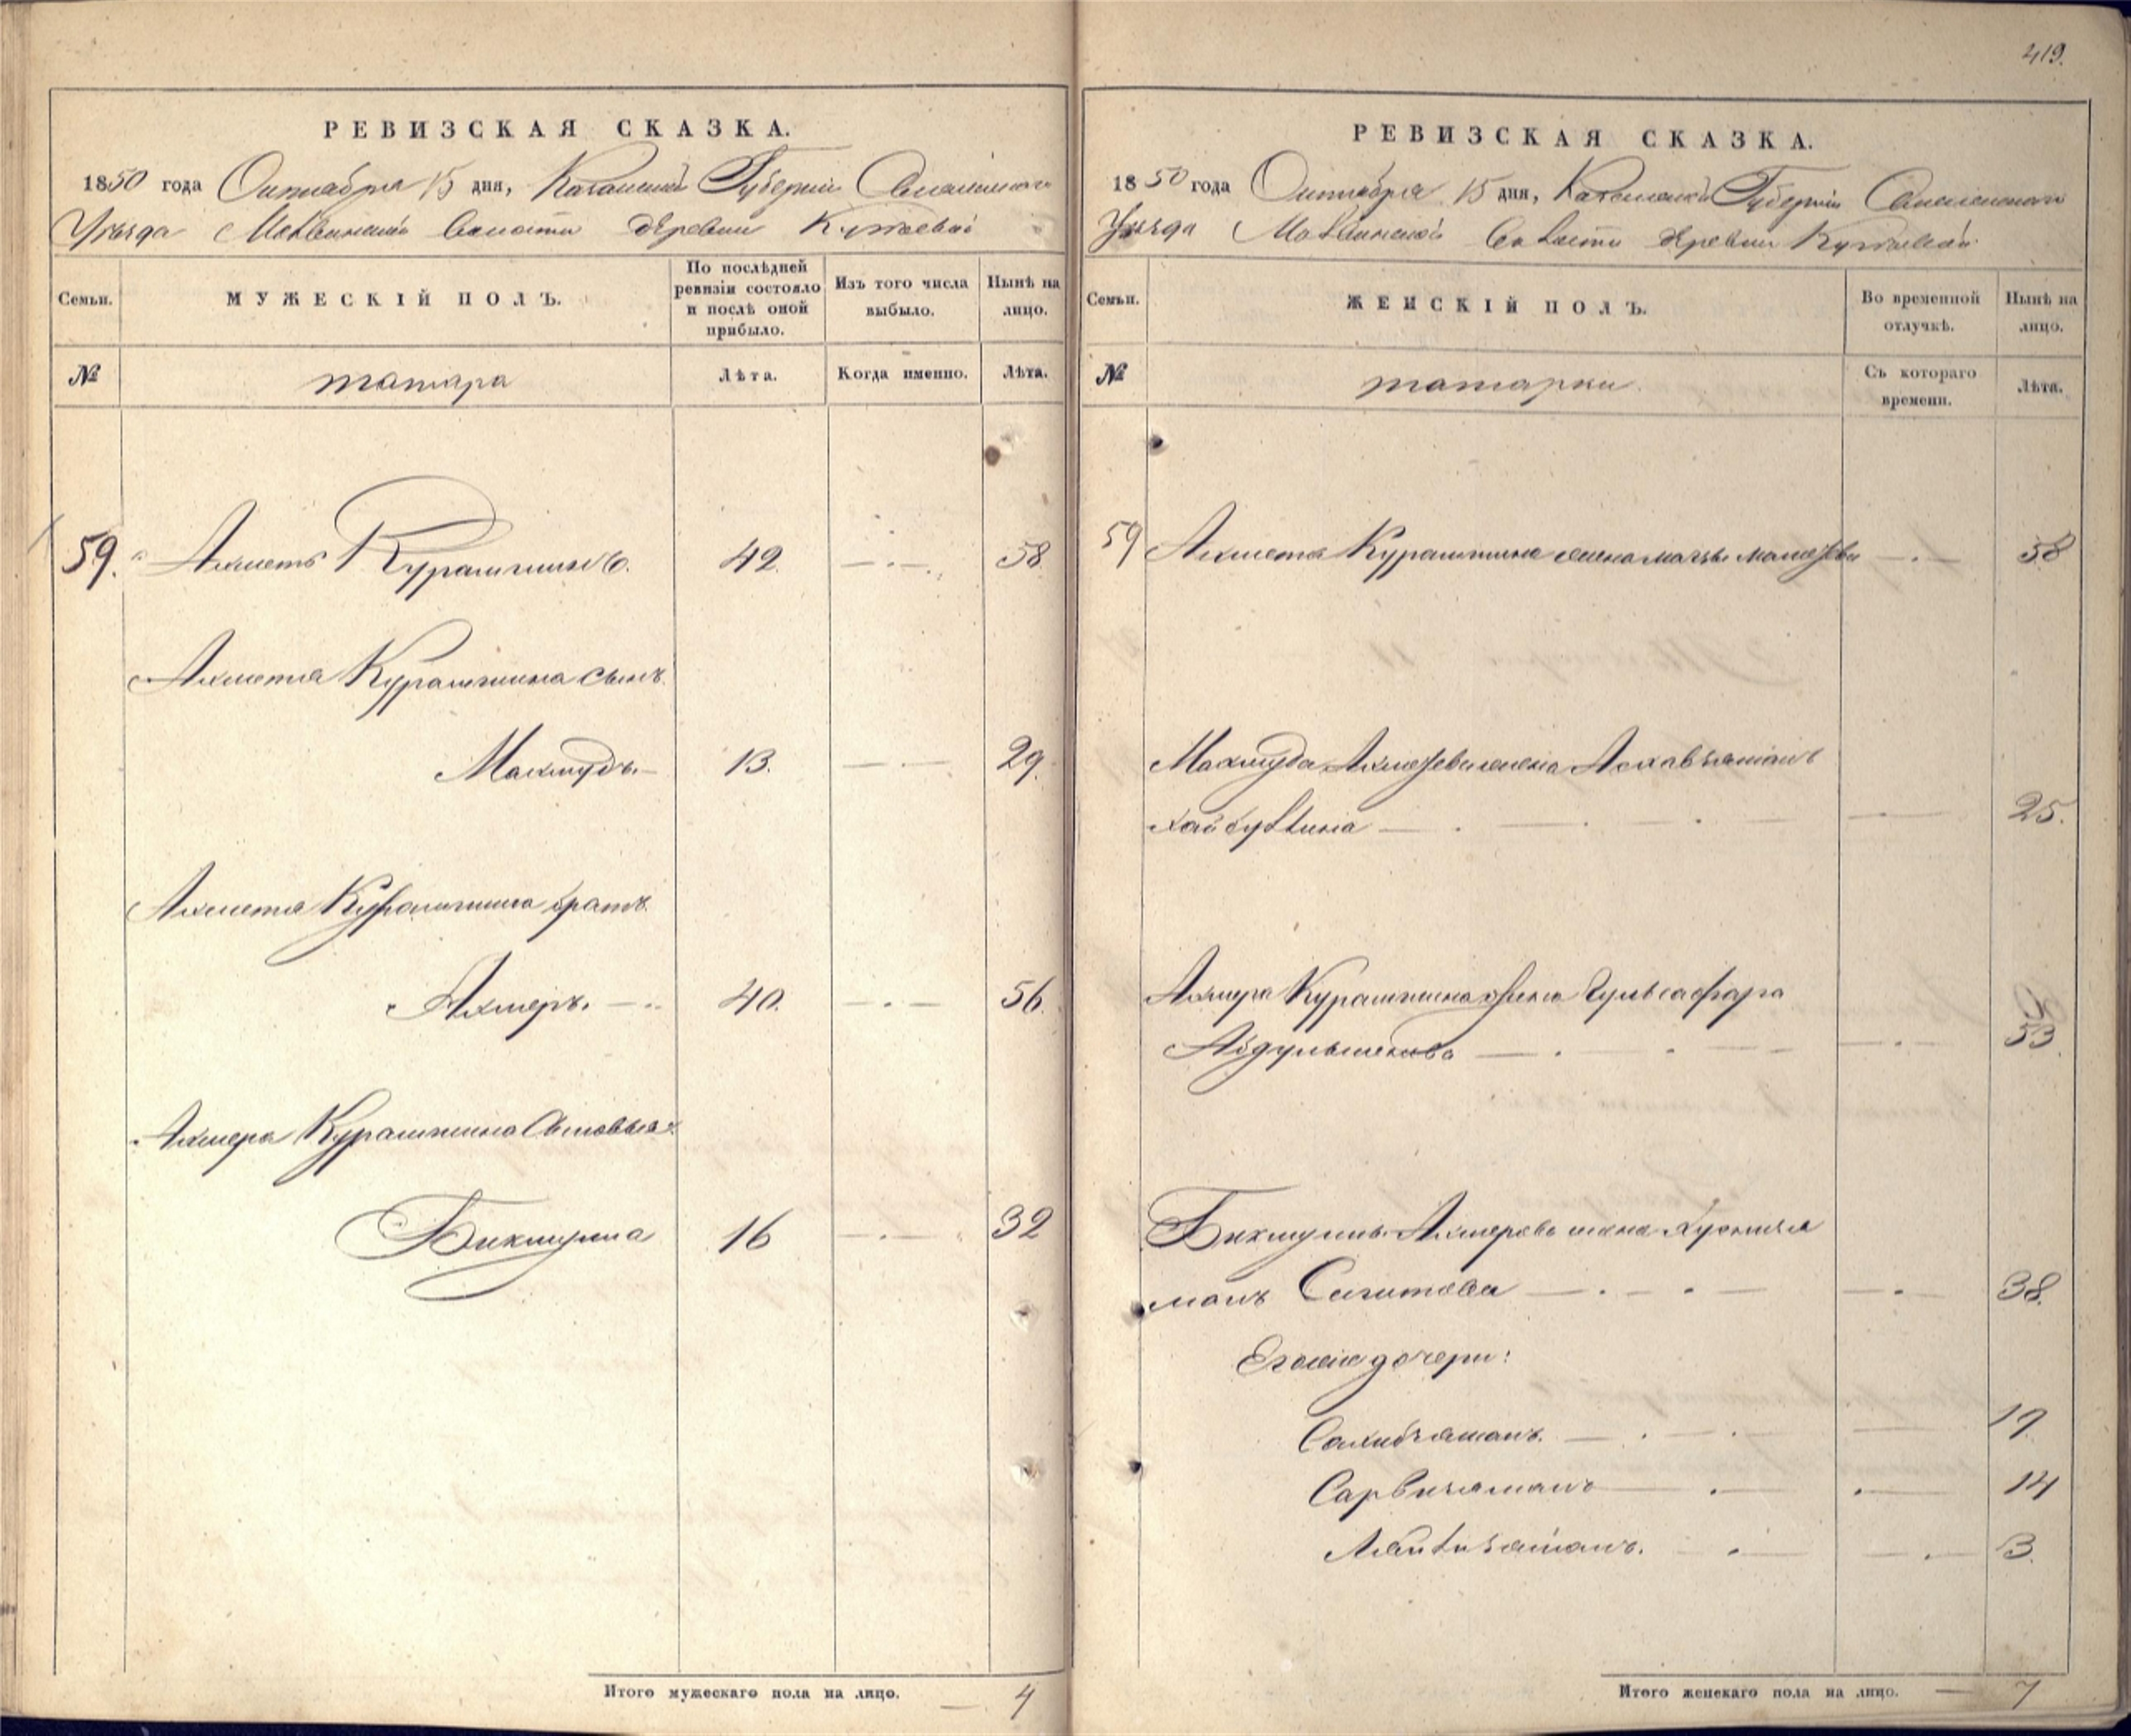 419.
РЕВИЗСКАЯ СКАЗКА.
1850 года Октября 15 дня, Казанской Губернии Спасского
Уезда Волости Деревни
Семьи.
МУЖЕСКІЙ ПОЛЪ.
По послѣдней ревизіи состояло и послѣ оной прибыло.
Изъ того числа выбыло.
Нынѣ на лицо.
№
татара
Лѣта.
Когда именно.
Лѣта.
59. Ахметъ Курамшинъ. 42 58
Ахметя Курамшина сынъ
Махмудъ. 13. 29.
Ахметя Курамшина братъ
Ахмеръ. 40. 56.
Ахмера Курамшина Сыновья:
Бикмула 16 32
Итого мужескаго пола на лицо. 4
РЕВИЗСКАЯ СКАЗКА.
1850 года Октября 15 дня, Казанской Губерніи Спасского
Уезда Волости Деревни
Семьи.
ЖЕНСКІЙ ПОЛЪ.
Во временной отлучкѣ.
Нынѣ на лицо.
№
татарки
Съ котораго времени.
Лѣта.
59 Ахметя Курамшина жена 58
Махмуда жена
Хайбуллина 25.
Ахмера Курамшина жена Гульсафара
53
Ахмерова жена Хусниза
манъ Сагитова 38.
Его же дочери:
Сахибзаманъ. 19
Сарвизаманъ 14
3.
Итого женскаго пола на лицо. 7